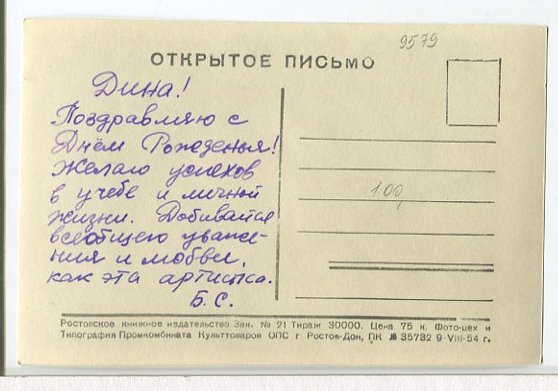 9579
ОТКРЫТОЕ ПИСЬМО
Дина!
Поздравляю с
Днём Рожденья!
Желаю успехов
в учебе и личной
жизни. Добивайся
всеобщего уваже-
ния и любви,
как эта артистка.
Б. С.
100
Ростовское книжное издательство Зак. № 21 Тираж 30000. Цена 75 к. Фото-цех и
Типография Промкомбината Культтоваров ОПС г Ростов-Дон, ПК № 35732 9-VIII-54 г.